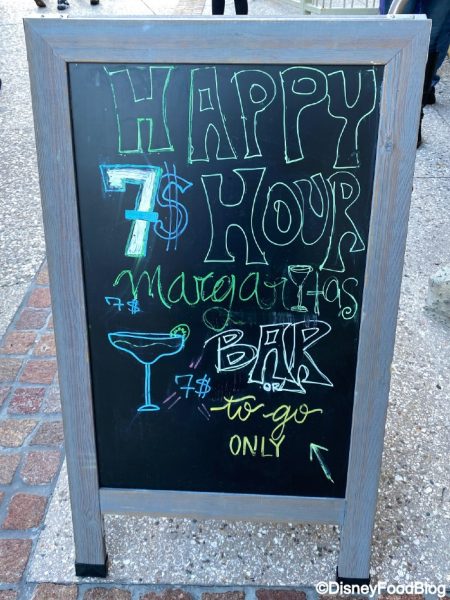 HAPPY
7$ HOUR
margaritas
7$
BAR
7$ OR
to go
ONLY
©DisneyFoodBlog